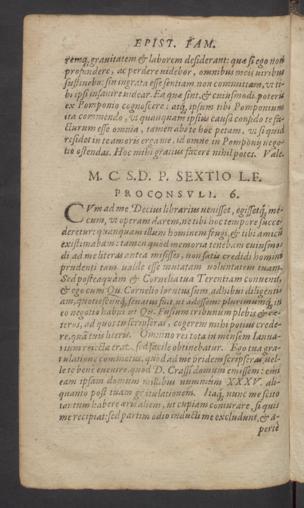 EPIST. FAM.
remq́; gravitatem & laborem desiderant: quæ si ego non
profundere, ac perdere videbor, omnibus meis viribus
sustinebo: sin ingrata esse sentiam non committam, vt ti-
bi ipsi insanire videar. Ea quæ sint, & cuiusmodi, poteris
ex Pomponio cognoscere: atq́; ipsum tibi Pomponium
ita commendo, vt quanquam ipsius causa confido te fa-
cturum esse omnia, tamen abs te hoc petam, vt si quid
residet in te amoris erga me, id omne in Pomponij nego-
tio ostendas. Hoc mihi gratius facere nihil potes. Vale.
M. C. S. D. P. SEXTIO L. F.
PROCONSVLI. 6.
CVm ad me Decius librarius venisset, egissetq́; me-
cum, vt operam darem, ne tibi hoc tempore succe-
deretur: quanquam illum hominem frugi, & tibi amicū
existimabam: tamen quod memoria tenebam cuiusmo-
di ad me literas antea misisses, non satis credidi homini
prudenti tam valde esse mutatam voluntatem tuam.
Sed posteaquàm & Cornelia tua Terentiam conuenit,
& ego cum Qu. Cornelio locutus sum, adhibui diligenti-
am, quotiescunq́; senatus fuit, vt adessem: plurimumq́; in
eo negotij habui, vt Qu. Fusium tribunum plebis & cæ-
teros, ad quos tu scripseras, cogerem mihi potius crede-
re, quā tuis literis. Omnino res tota in mensem Ianua-
rium reiecta erat, sed facilè obtinebatur. Ego tua gra-
tulatione commotus, quòd ad me pridem scripseras vel-
le te bene euenire, quod D. Crassi domum emissem: emi
eam ipsam domum millibus nummûm XXXV. ali-
quanto post tuam gratulationem. Itaq́; nunc me scito
tantum habere æris alieni, vt cupiam coniurare, si quis
me recipiat: sed partim odio inducti me excludunt, & a-
pertè